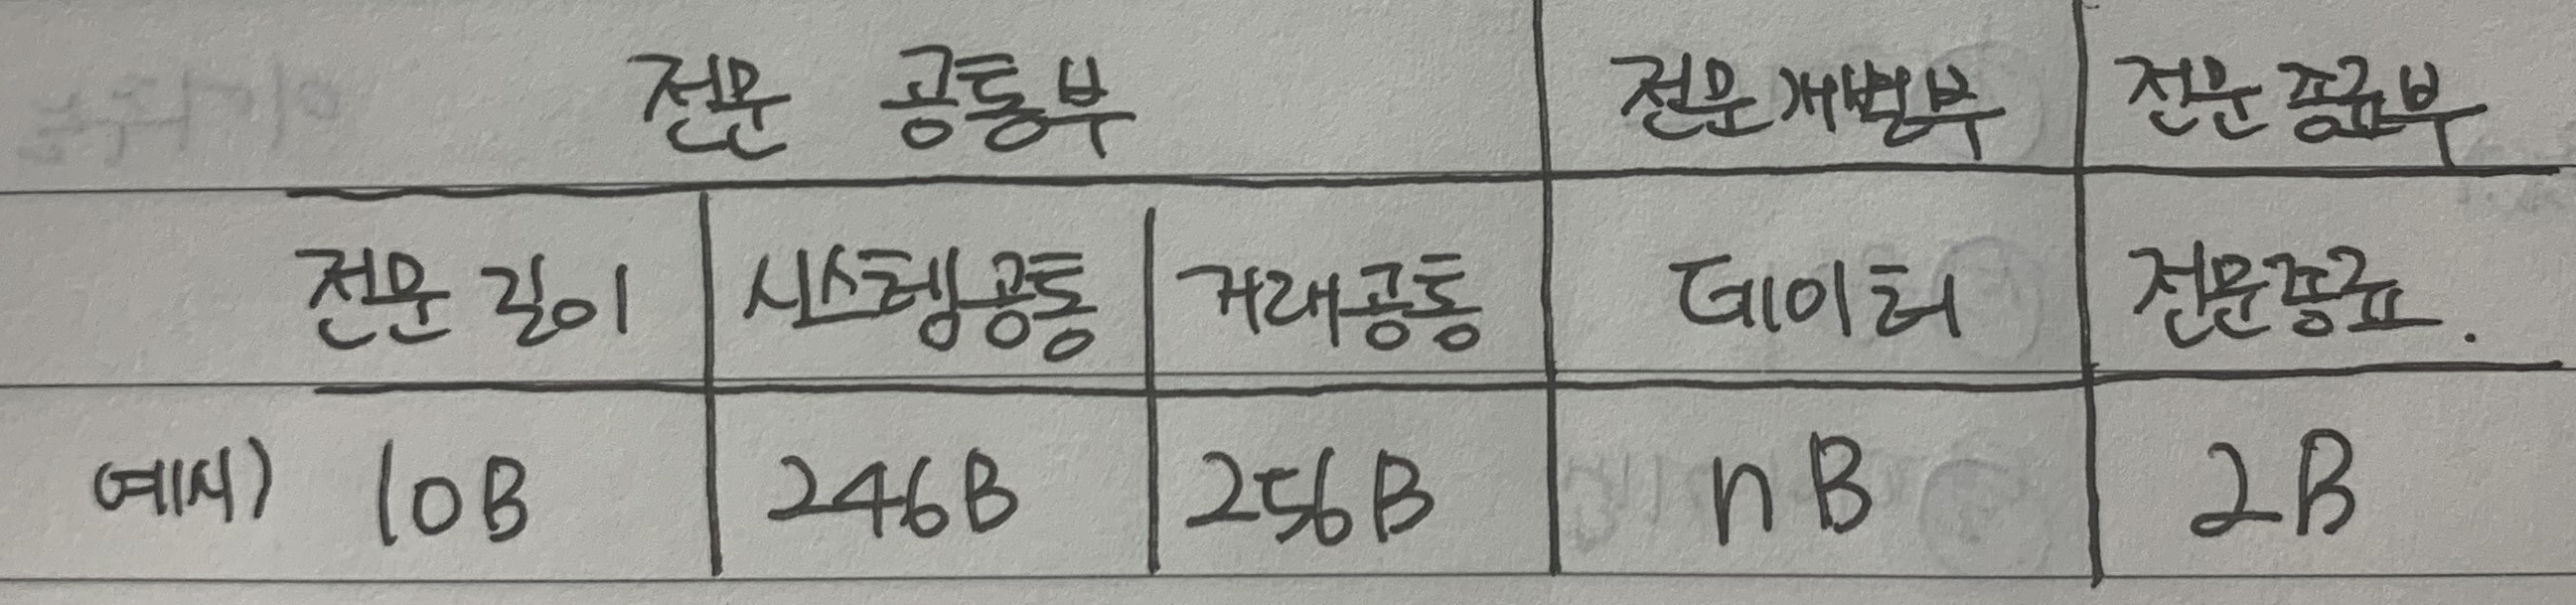 전문 공통부 전문개별부 전문종료부
전문 길이 시스템공통 거래공통 데이터 전문종료.
예시) 10B 246B 256B nB 2B